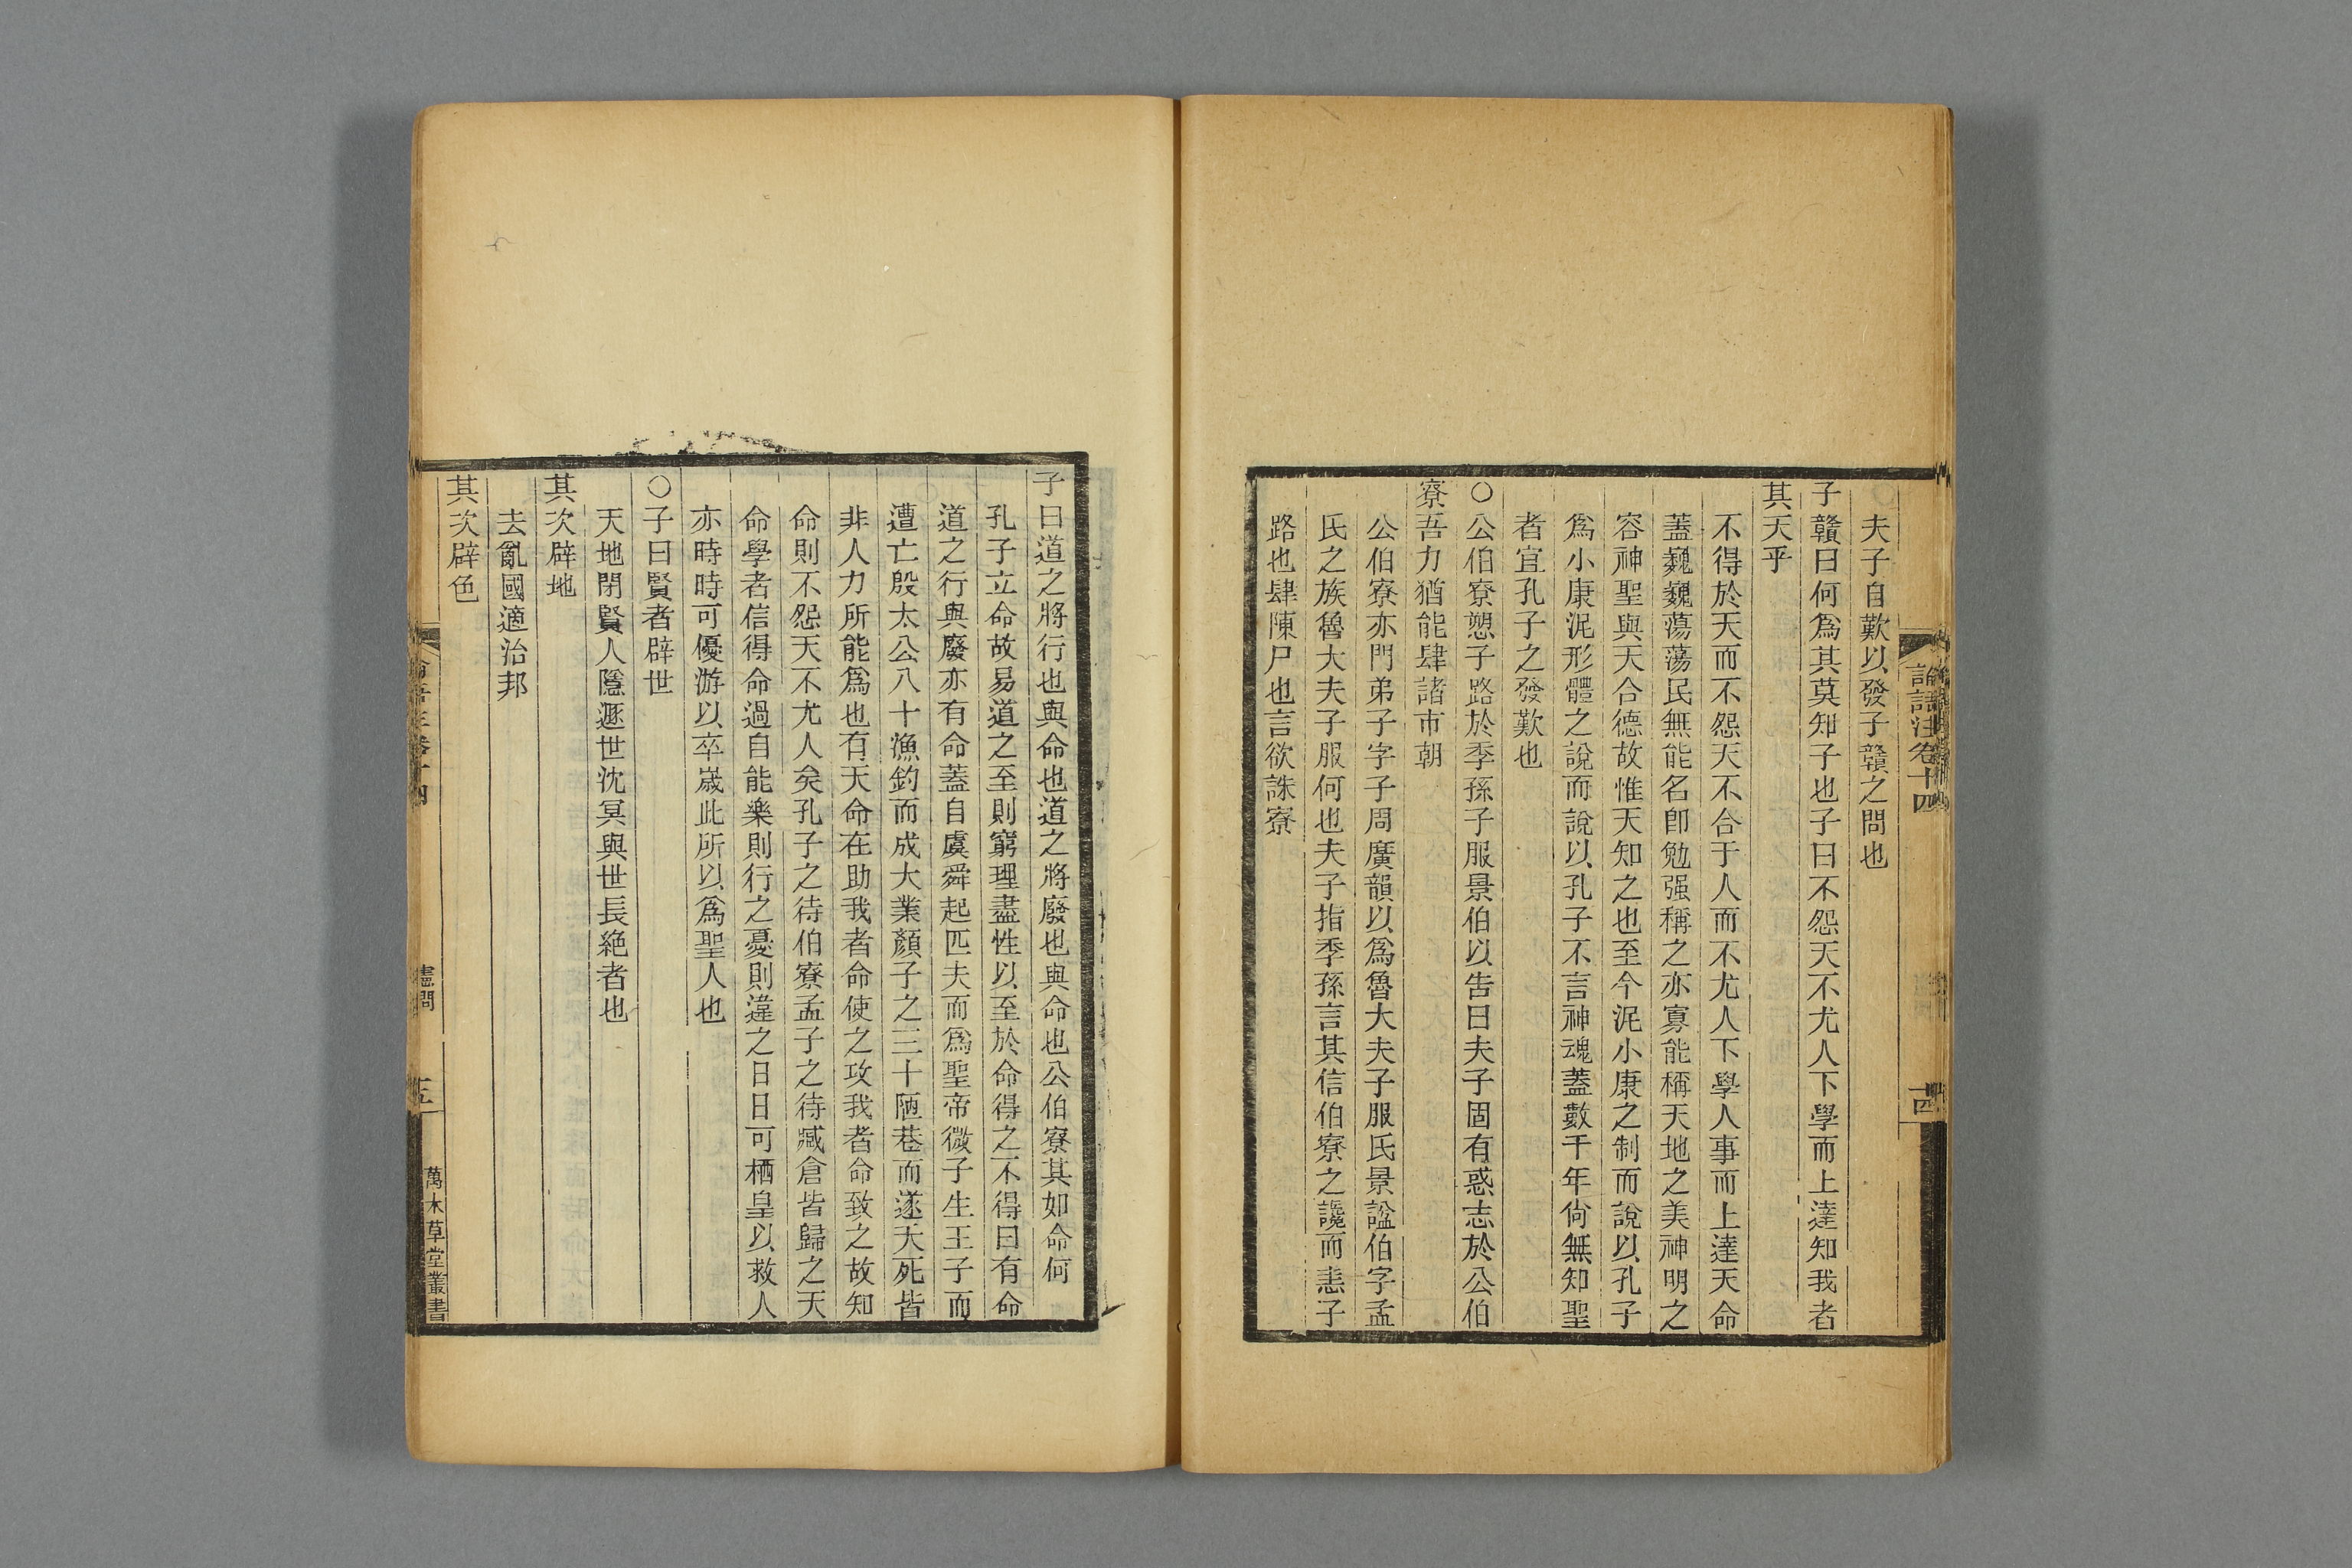 論語注卷十四
十四
夫子自歎以發子贛之問也
子贛曰何爲其莫知子也子曰不怨天不尤人下學而上達知我者
其天乎
不得於天而不怨天不合于人而不尤人下學人事而上達天命
蓋巍巍蕩蕩民無能名卽勉强稱之亦寡能稱天地之美神明之
容神聖與天合德故惟天知之也至今泥小康之制而說以孔子
爲小康泥形體之說而說以孔子不言神魂蓋數千年尙無知聖
者宜孔子之發歎也
○公伯寮愬子路於季孫子服景伯以吿曰夫子固有惑志於公伯
寮吾力猶能肆諸市朝
公伯寮亦門弟子字子周廣韻以爲魯大夫子服氏景諡伯字孟
氏之族魯大夫子服何也夫子指季孫言其信伯寮之讒而恚子
路也肆陳尸也言欲誅寮
子曰道之將行也與命也道之將廢也與命也公伯寮其如命何
孔子立命故易道之至則窮理盡性以至於命得之不得曰有命
道之行與廢亦有命蓋自虞舜起匹夫而爲聖帝微子生王子而
遭亡殷太公八十漁釣而成大業顏子之三十陋巷而遂夭死皆
非人力所能爲也有天命在助我者命使之攻我者命致之故知
命則不怨天不尤人矣孔子之待伯寮孟子之待臧倉皆歸之天
命學者信得命過自能樂則行之憂則違之日日可栖皇以救人
亦時時可優游以卒歲此所以爲聖人也
○子曰賢者辟世
天地閉賢人隱遯世沈冥與世長絶者也
其次辟地
去亂國適治邦
其次辟色
論語注卷十四
憲問
萬木草堂叢書